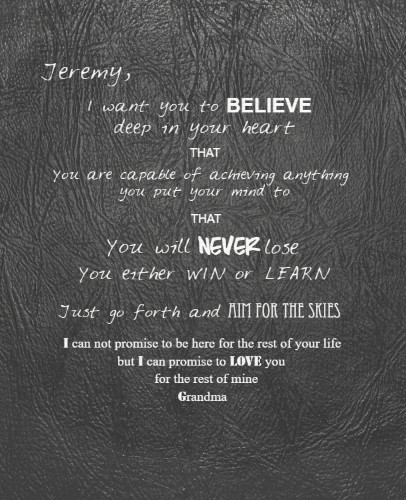 Jeremy,
I want you to BELIEVE
deep in your heart
THAT
You are capable of achieving anything
you put your mind to
THAT
You will NEVER lose
You either WIN or LEARN
Just go forth and AIM FOR THE SKIES
I can not promise to be here for the rest of your life
but I can promise to LOVE you
for the rest of mine
Grandma